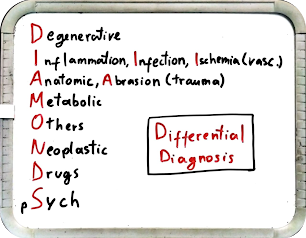 Degenerative
Inflammation, Infection, Ischemia (vasc.)
Anatomic, Abrasion (trauma)
Metabolic
Others
Neoplastic
Drugs
pSych
Differential
Diagnosis